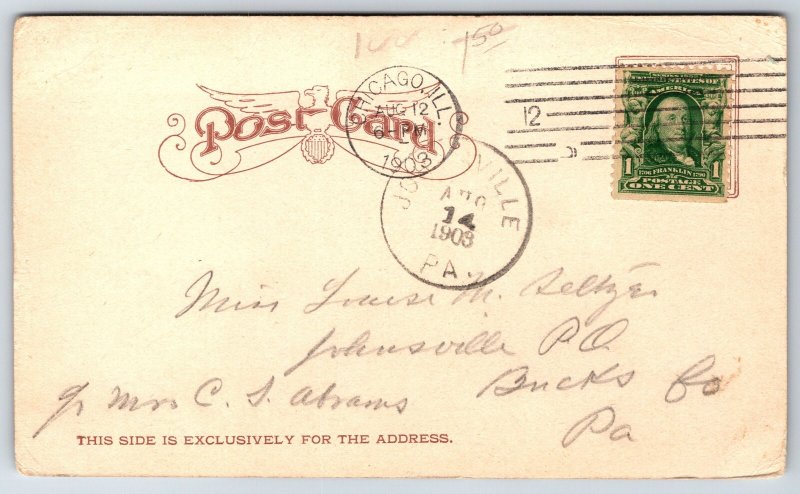 100 150
Post Card
CHICAGO, ILL.
AUG 12
6-PM
1903
12
SERIES 1902
UNITED STATES OF
AMERICA
1 1
1706 FRANKLIN 1790
POSTAGE
ONE CENT
JO VILLE
AUG
14
1903
PA.
Miss Louise M. Seltzer
Johnsville P.O.
Bucks Co
c/o Mrs C. S. Abrams
Pa
THIS SIDE IS EXCLUSIVELY FOR THE ADDRESS.